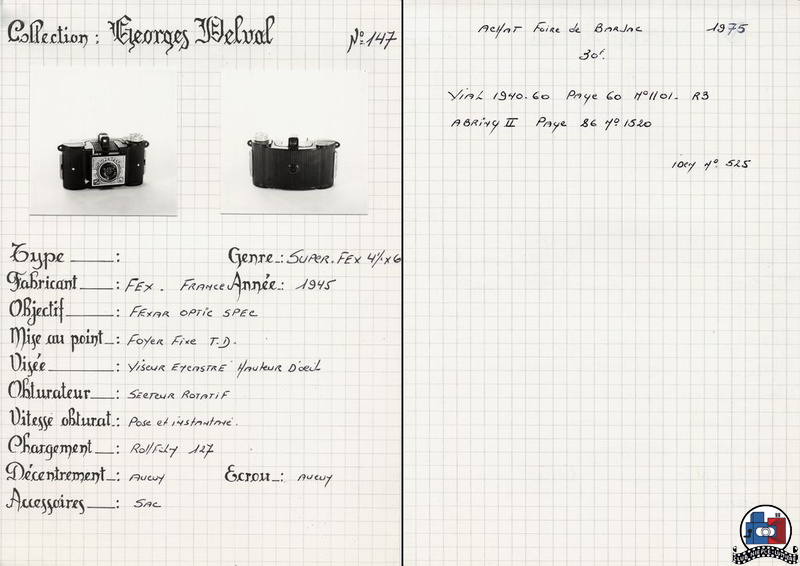 Collection : Georges Delval Nº 147
Type : Genre : Super. Fex 4½x6
Fabricant : Fex . France Année : 1945
Objectif : Fexar optic spec
Mise au point : Foyer Fixe T.D.
Visée : Viseur Encastré Hauteur D'oeil
Obturateur : Secteur Rotatif
Vitesse obturat. : Pose et instantané.
Chargement : Rollfilm 127
Décentrement : Aucun Ecrou : Aucun
Accessoires : Sac
Achat Foire de Barjac 1975
30f.
Vial 1940.60 Page 60 Nº1101. R3
Abring II Page 86 Nº 1520
Nº 525